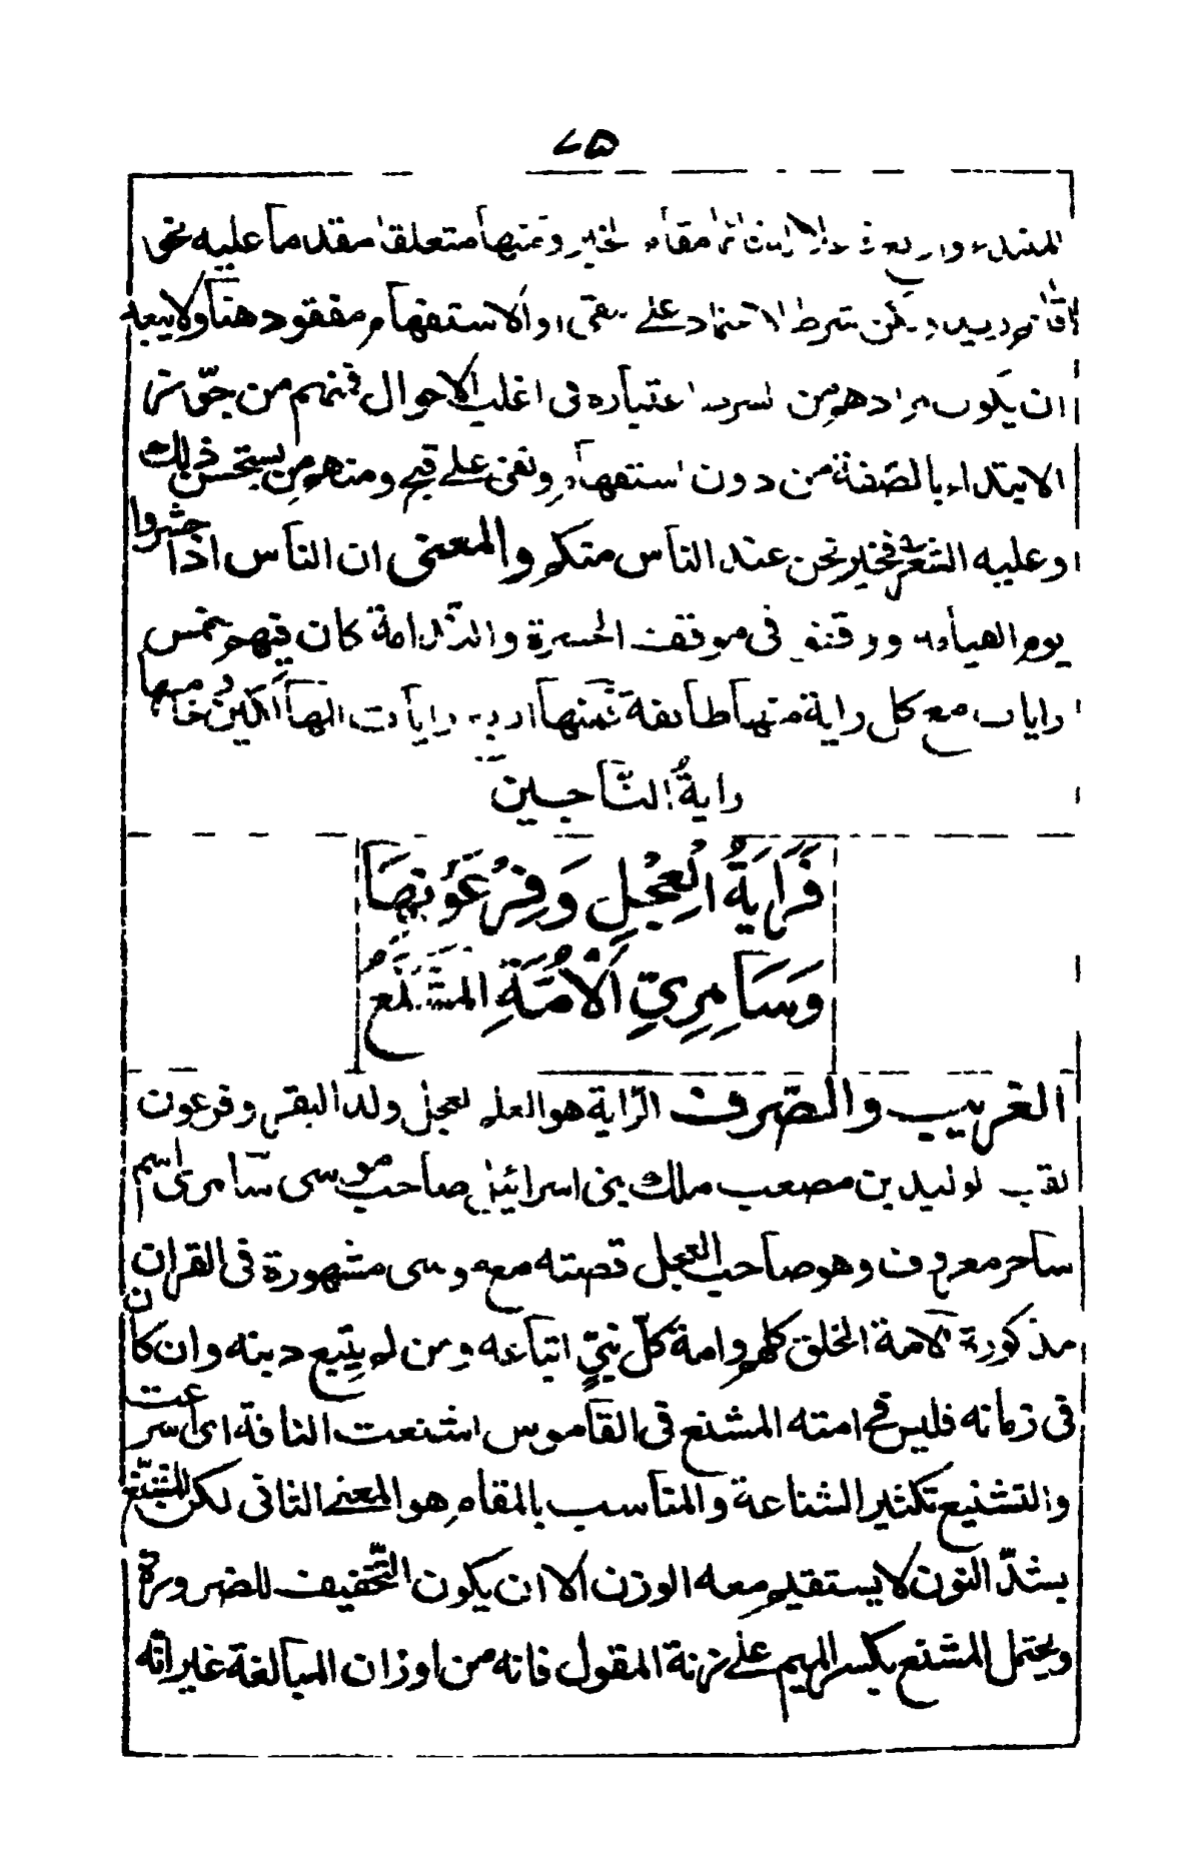 ٧۵
المبتدء و مقام الخبر ومنها متعلقا مقدما عليه نحو
ولكن شرط الاعتماد على نفى او الاستفهام مفقود هنا ولا يبعد
ان يكون مرادهم من اعتباره فى اغلب الاحوال فمنهم من جوّز
الابتداء بالصّفة من دون استفهام ونفى على قبح ومنهم من يستحسن ذلك
وعليه الشعر فخير نحن عند الناس منكم والمعنى ان الناس اذا حشروا
يوم القيامة ووقفوا فى موقف الحسرة والنّدامة كان فيهم خمس
رايات مع كل راية منها طائفة فمنها اربع رايات الهالكين خامسها
راية النّاجين
فَرَايَةُ الْعِجْلِ وَفِرْعَوْنُهَا
وَسَامِرِيُّ الْاُمَّةِ الْمُشَنَّعُ
الغريب والصّرف الرّاية هو العلم لعجل ولد البقر وفرعون
لقب لوليد بن مصعب ملك بنى اسرائيل صاحب موسى سامرى اسم
ساحر معروف وهو صاحب العجل قصته معه وسى مشهورة فى القران
مذكورة الامة الخلق كلهم وامة كلّ نبىّ اتباعه ومن لم يتبع دينه وان كان
فى زمانه فليس فى امته المشنع فى القاموس اشنعت الناقة اى اسرعت
والتشنيع تكثير الشناعة والمناسب بالمقام هو المعنى الثانى لكن المشنّع
بشدّ النون لا يستقيم معه الوزن الا ان يكون التّخفيف للضرورة
ويحتمل المشنع بكسر الميم على زنة المقول فانه من اوزان المبالغة غير انّه